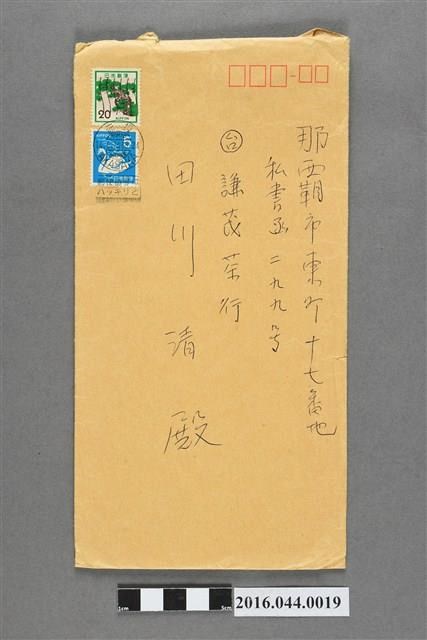 那覇市東町十七番地
私書函二九九号
台 謙茂茶行
田川清殿
日本郵便
20
NIPPON
5
ハッキリと
1cm
5cm
2016.044.0019